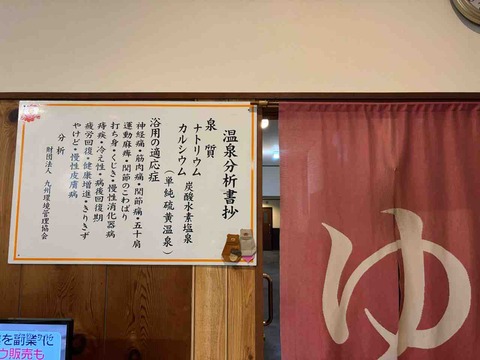 温泉分析書抄
泉質
ナトリウム
カルシウム
炭酸水素塩泉
(単純硫黄温泉)
浴用の適応症
神経痛・筋肉痛・関節痛・五十肩
運動麻痺・関節のこわばり
打ち身・くじき・慢性消化器病
痔疾・冷え性・病後回復期
疲労回復・健康増進・きりきず
やけど・慢性皮膚病
分析
財団法人 九州環境管理協会
ゆ
を副業化
ウ販売も